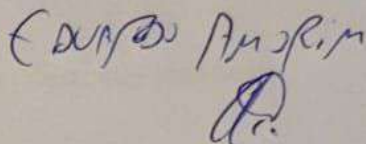 EDUARDO AMORIM